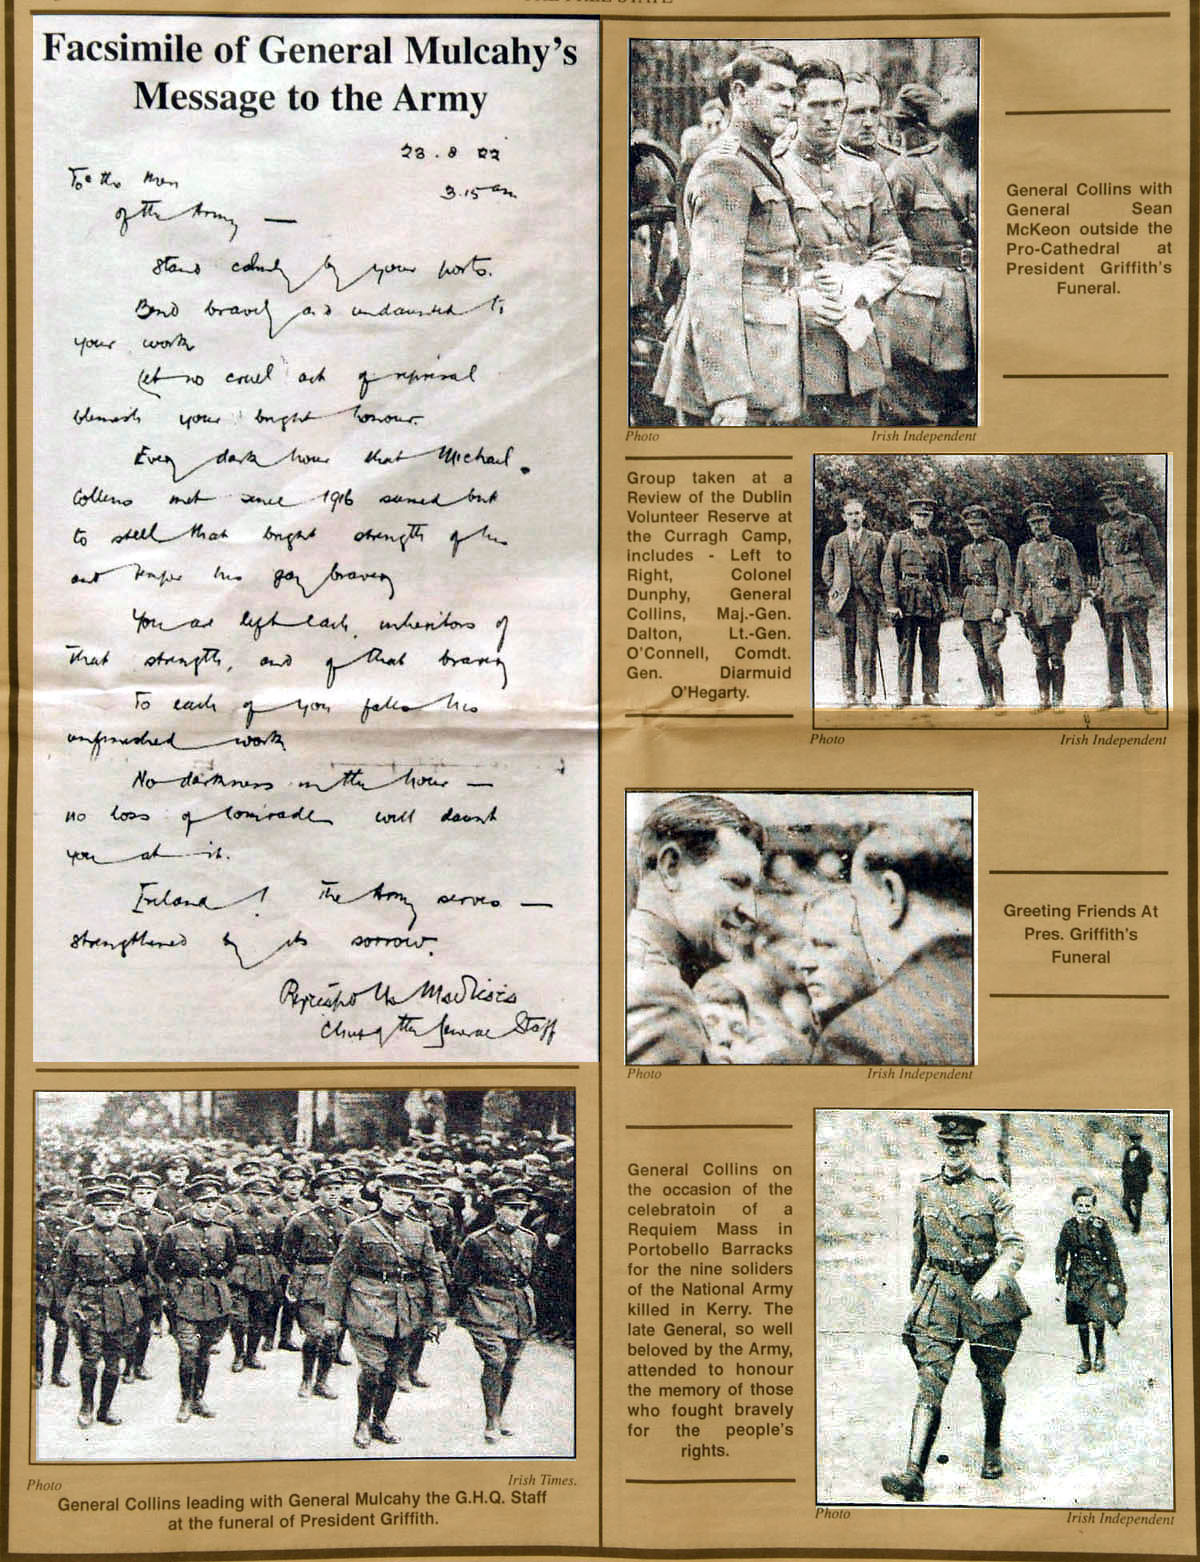 THE FREE STATE
Facsimile of General Mulcahy's
Message to the Army
23.8 22
3.15 am
To the Men
of the Army —
Stand calmly by your posts.
Bend bravely and undaunted to
your work
Let no cruel act of reprisal
blemish your bright honour.
Every dark hour that Michael
Collins met since 1916 seemed but
to steel that bright strength of his
and temper his gay bravery
You are left each inheritors of
that strength, and of that bravery
To each of you falls his
unfinished work
No darkness in the hour —
no loss of comrades will daunt
you at it.
Ireland! The Army serves —
strengthened by its sorrow.
Risteárd Ua Maolchatha
Chief of the General Staff
Photo
Irish Times.
General Collins leading with General Mulcahy the G.H.Q. Staff
at the funeral of President Griffith.
General Collins with
General Sean
McKeon outside the
Pro-Cathedral at
President Griffith's
Funeral.
Photo
Irish Independent
Group taken at a
Review of the Dublin
Volunteer Reserve at
the Curragh Camp,
includes - Left to
Right, Colonel
Dunphy, General
Collins, Maj.-Gen.
Dalton, Lt.-Gen.
O'Connell, Comdt.
Gen. Diarmuid
O'Hegarty.
Photo
Irish Independent
Greeting Friends At
Pres. Griffith's
Funeral
Photo
Irish Independent
General Collins on
the occasion of the
celebratoin of a
Requiem Mass in
Portobello Barracks
for the nine soliders
of the National Army
killed in Kerry. The
late General, so well
beloved by the Army,
attended to honour
the memory of those
who fought bravely
for the people's
rights.
Photo
Irish Independent